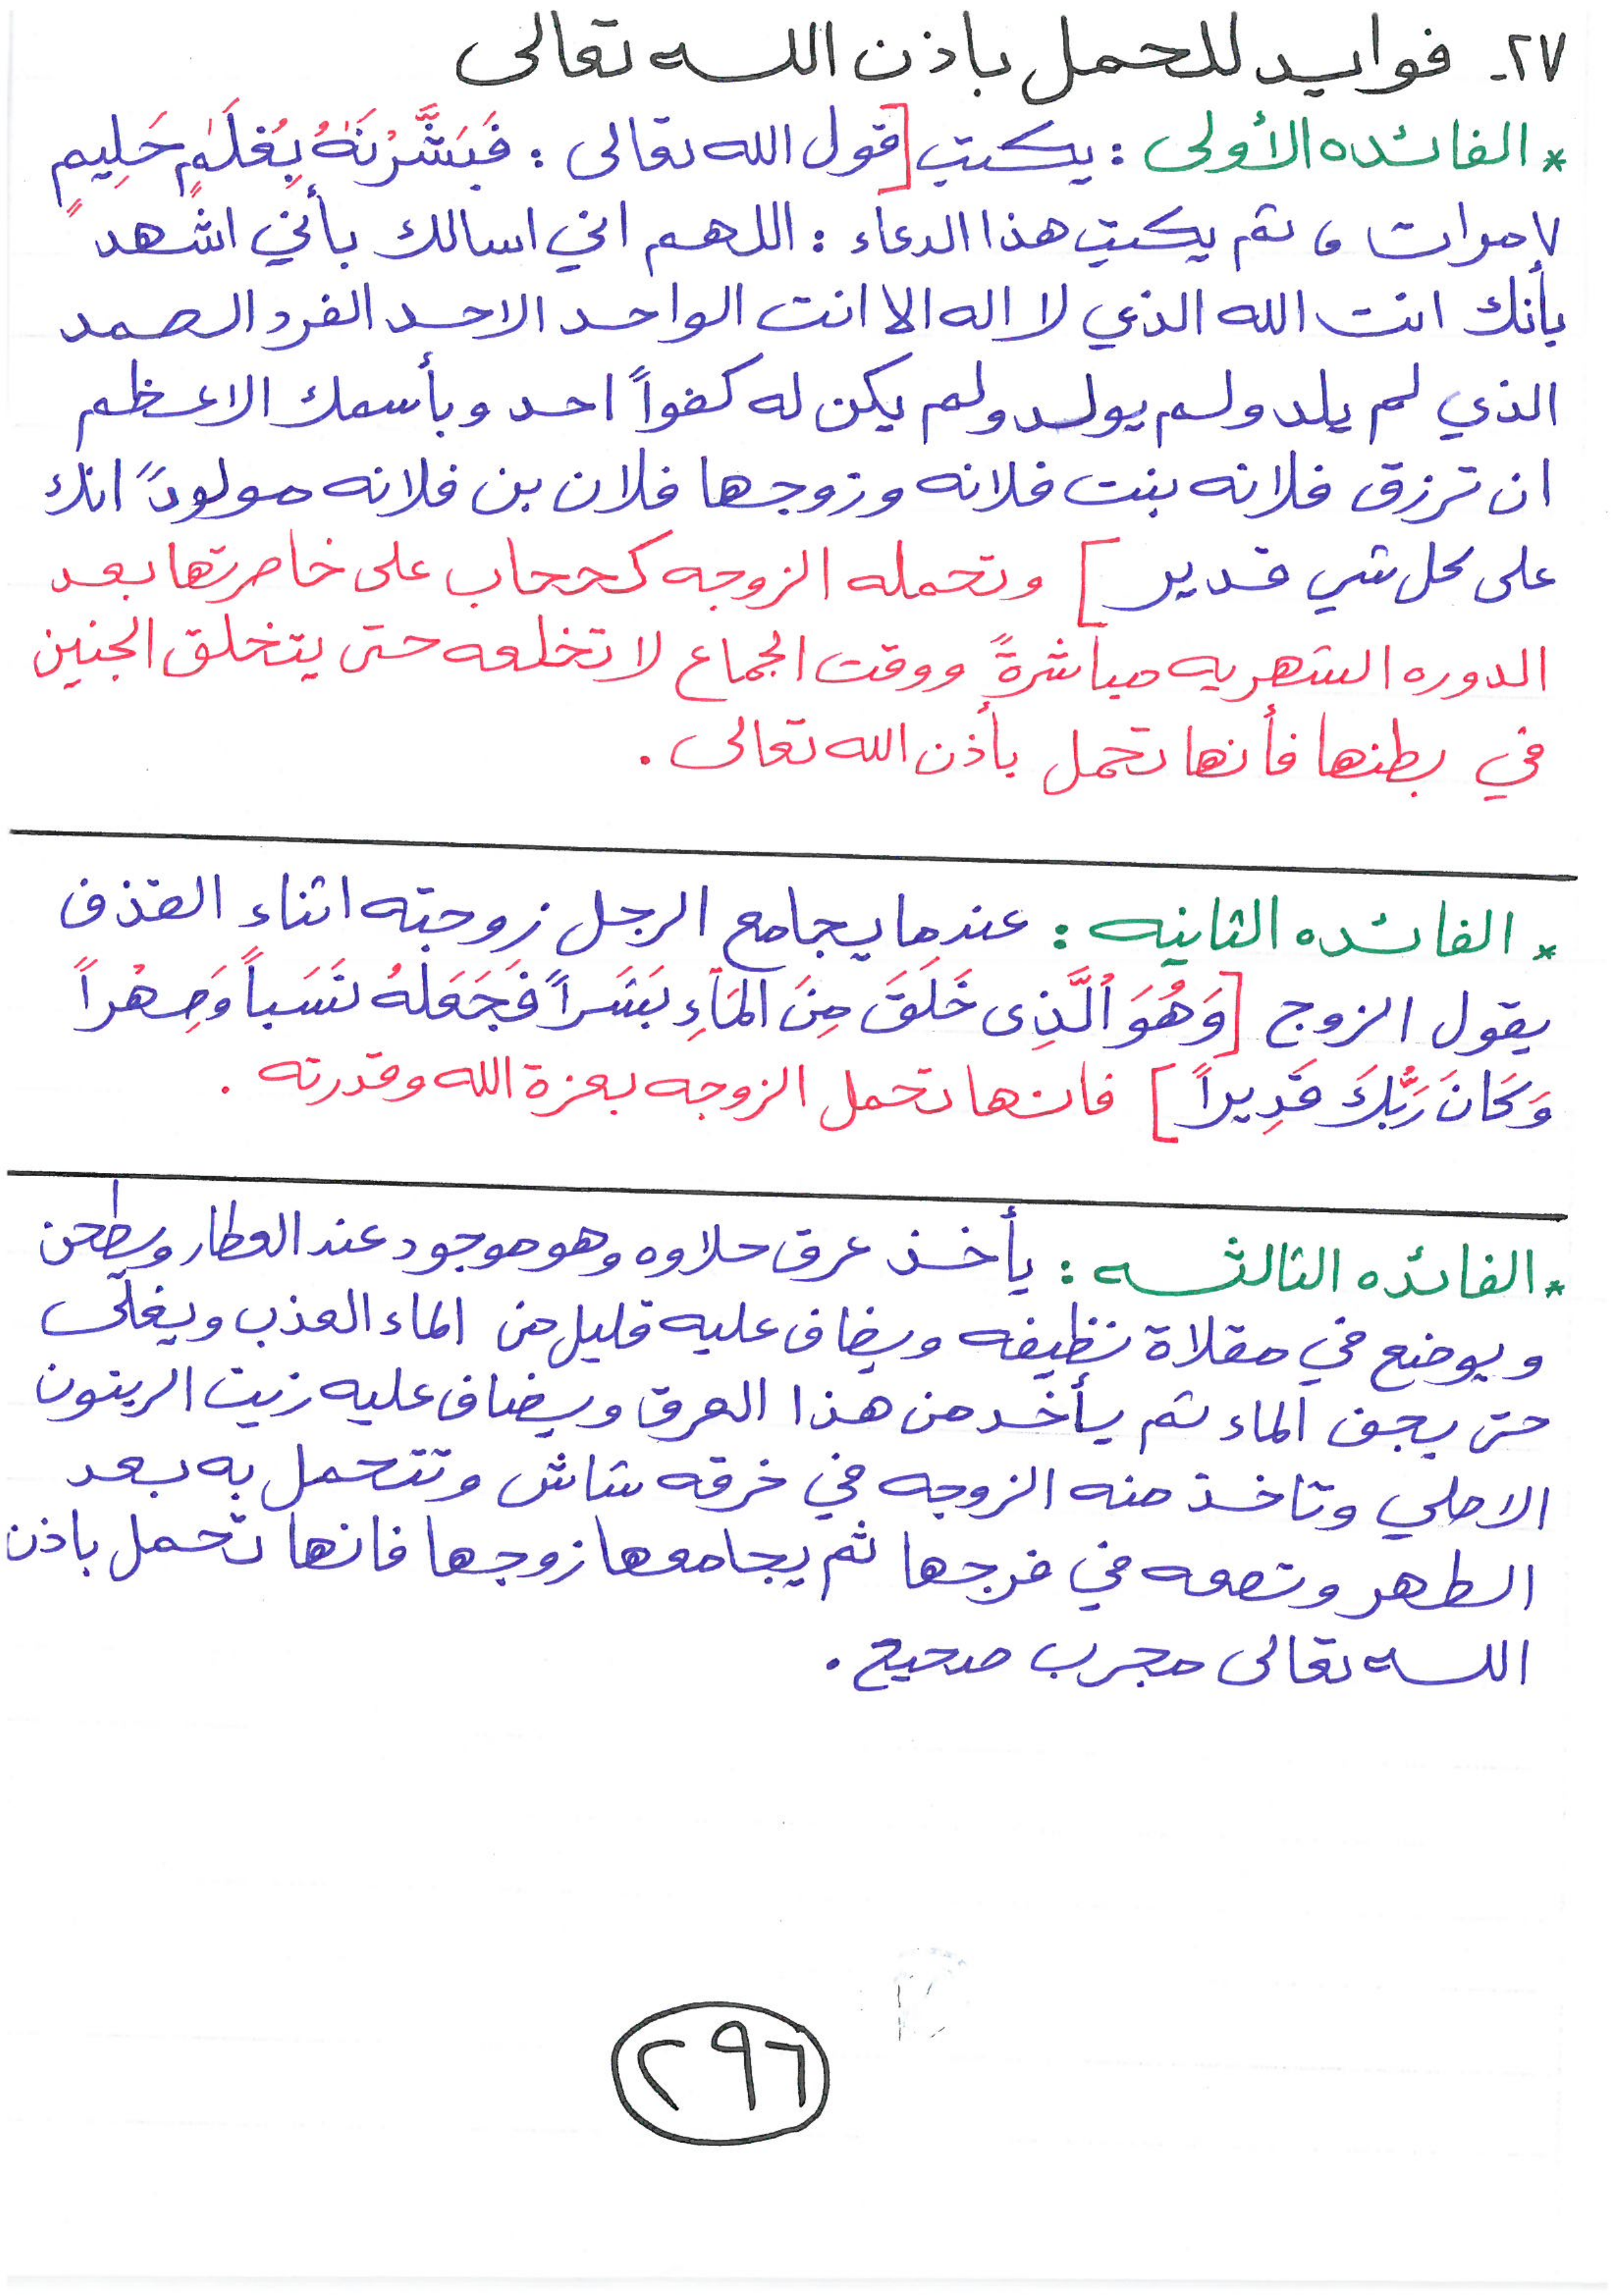 ٢٧- فوايد للحمل باذن الله تعالى
* الفائده الأولى : يكتب [قول الله تعالى : فَبَشَّرْنَٰهُ بِغُلَٰمٍ حَلِيمٍ "
٧ مرات ، ثم يكتب هذا الدعاء : اللهم اني اسالك بأني اشهد
بأنك انت الله الذي لا اله الا انت الواحد الاحد الفرد الصمد
الذي لم يلد ولم يولد ولم يكن له كفواً احد وبأسمك الاعظم
ان ترزق فلانه بنت فلانه وزوجها فلان بن فلانه مولوداً انك
على كل شي قدير ] وتحمله الزوجه كحجاب على خاصرتها بعد
الدوره الشهريه مباشرةً ووقت الجماع لا تخلعه حتى يتخلق الجنين
في بطنها فأنها تحمل بأذن الله تعالى .
* الفائده الثانيه : عندما يجامع الرجل زوجته اثناء القذف
يقول الزوج [وَهُوَ ٱلَّذِى خَلَقَ مِنَ المَآءِ بَشَراً فَجَعَلَهُ نَسَباً وَصِهْراً
وَكَانَ رَبُّكَ قَدِيراً ] فانها تحمل الزوجه بعزة الله وقدرته .
* الفائده الثالثه : يأخذ عرق حلاوه وهو موجود عند العطار ويطحن
ويوضع في مقلاة نظيفه ويضاف عليه قليل من الماء العذب ويغلى
حتى يجف الماء ثم يأخد من هذا العرق ويضاف عليه زيت الزيتون
الاصلي وتاخذ منه الزوجه في خرقه شاش وتتحمل به بعد
الطهر وتضعه في فرجها ثم يجامعها زوجها فانها تحمل باذن
الله تعالى مجرب صحيح .
٢٩٦